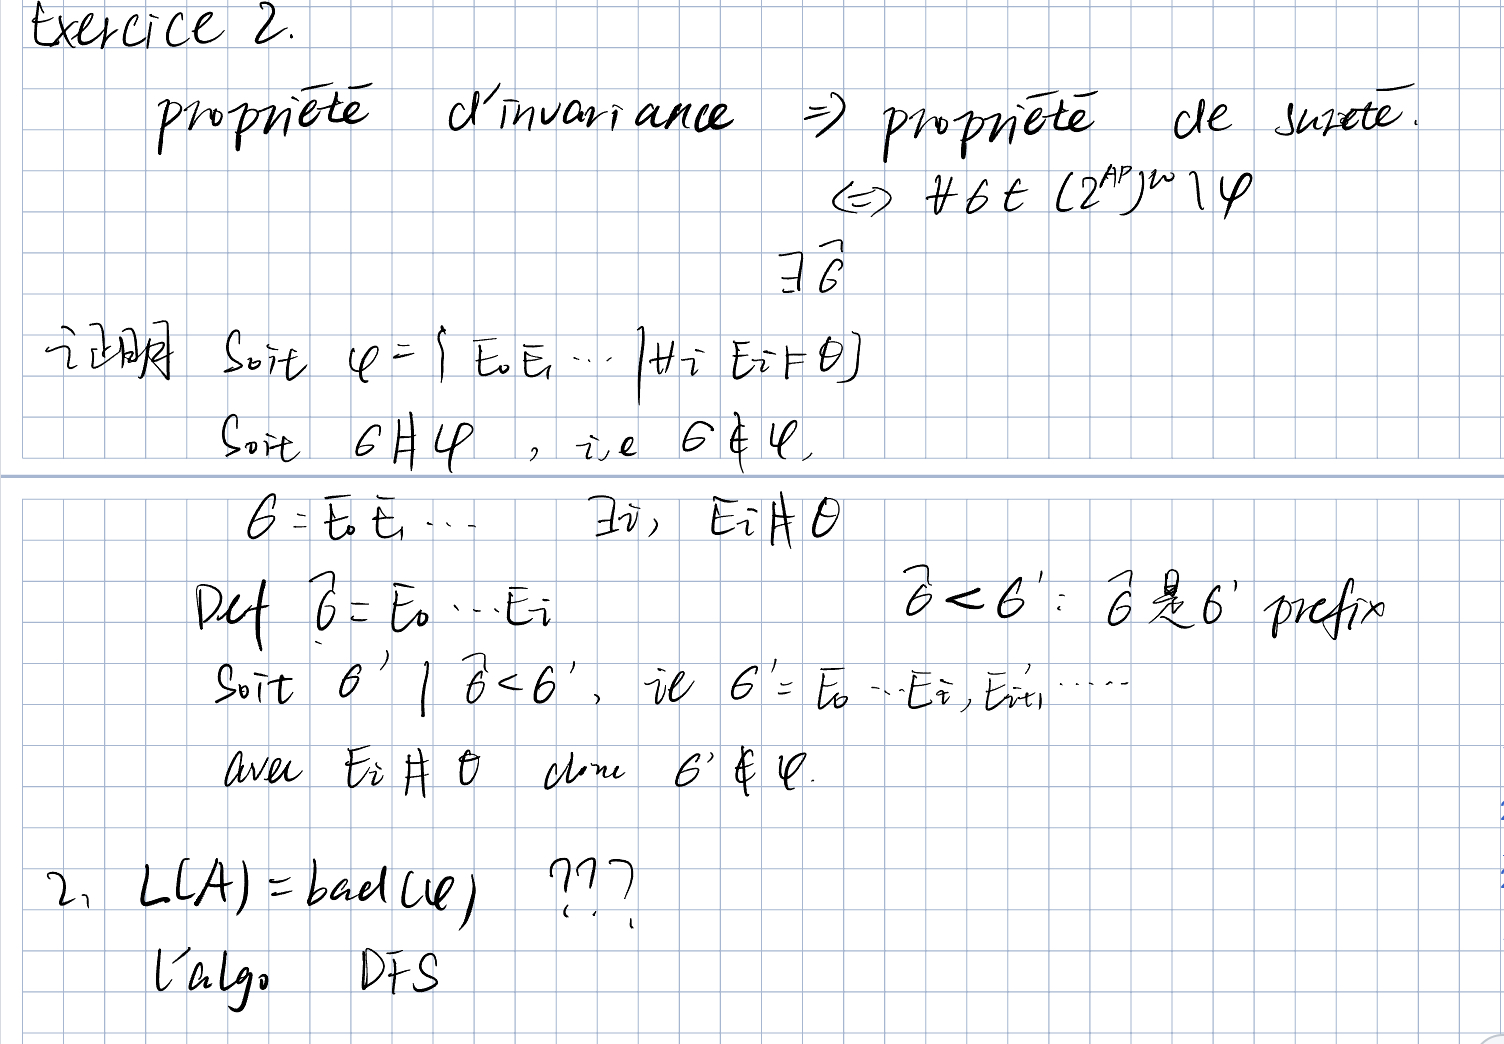 Exercice 2.
propriété d'invariance ⇒ propriété de sureté.
⇔ ∀ σ ∈ (2^AP)^ω \ φ
∃ σ̂
证明 Soit φ = { E₀E₁ ... | ∀i Ei ⊨ θ }
Soit σ ⊭ φ, i.e σ ∉ φ.
σ = E₀ E₁ ... ∃i, Ei ⊭ θ
Def σ̂ = E₀ ... Ei σ̂ < σ' : σ̂ 是 σ' prefix
Soit σ' | σ̂ < σ', ie σ' = E₀ ... Ei, E'i+1 .....
avec Ei ⊭ θ donc σ' ∉ φ.
2, L(A) = bad(φ) ???
l'algo DFS